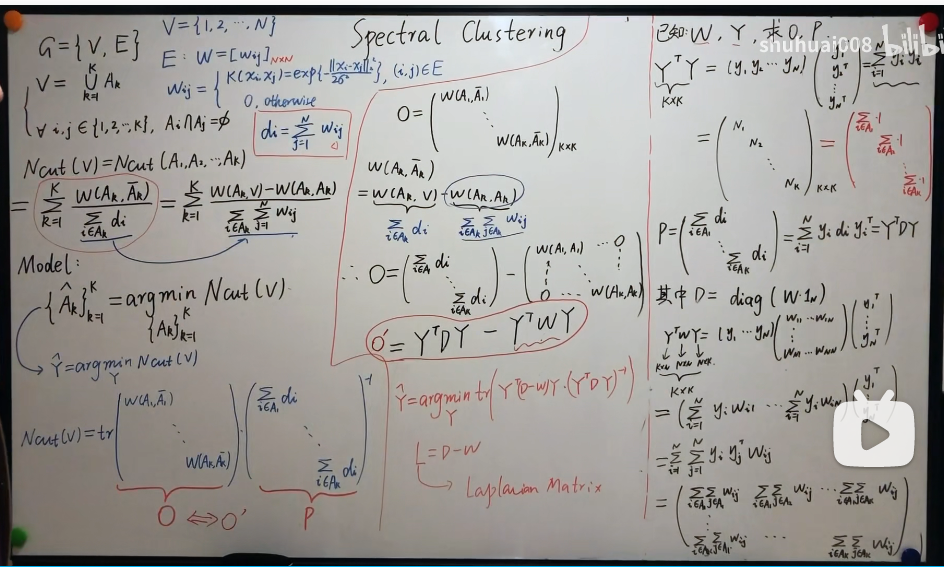 Spectral Clustering
G = {V, E}
V = {1, 2, ⋯, N}
E: W = [wij]N×N
wij = { K(xi, xj) = exp{-||xi-xj||₂²/2σ²}, (i,j)∈E
0, otherwise
V = ⋃_{k=1}^{K} Ak
∀ i,j ∈ {1, 2, ⋯, K}, Ai∩Aj = ∅
di = Σ_{j=1}^{N} wij
Ncut(V) = Ncut(A1, A2, ⋯, AK)
= Σ_{k=1}^{K} W(Ak, Āk) / Σ_{i∈Ak} di = Σ_{k=1}^{K} (W(Ak, V) - W(Ak, Ak)) / Σ_{i∈Ak} Σ_{j=1}^{N} wij
Model:
{Âk}_{k=1}^{K} = argmin Ncut(V)
{Ak}_{k=1}^{K}
Ŷ = argmin Ncut(V)
Y
Ncut(V) = tr ( W(A1, Ā1) ⋱ W(AK, ĀK) ) · ( Σ_{i∈A1} di ⋱ Σ_{i∈AK} di )⁻¹
O ⇔ O' P
O = ( W(A1, Ā1) ⋱ W(AK, ĀK) )K×K
W(Ak, Āk)
= W(Ak, V) - W(Ak, Ak)
Σ_{i∈Ak} di Σ_{i∈Ak} Σ_{j∈Ak} wij
∴ O = ( Σ_{i∈A1} di ⋱ Σ_{i∈AK} di ) - ( W(A1, A1) ⋯ O ⋮ ⋱ ⋮ O W(AK, AK) )
O' = YᵀDY - YᵀWY
Ŷ = argmin tr(Yᵀ(D-W)Y·(YᵀDY)⁻¹)
Y
L = D-W
Laplacian Matrix
已知: W, Y, 求 O, P
shuhuai008 bilibili
YᵀY = (y1, y2 ⋯ yN) ( y1ᵀ y2ᵀ ⋮ yNᵀ ) = Σ_{i=1}^{N} yi yiᵀ
K×K
= ( N1 N2 ⋱ NK )K×K = ( Σ_{i∈A1} 1 Σ_{i∈A2} 1 ⋱ Σ_{i∈AK} 1 )
P = ( Σ_{i∈A1} di ⋱ Σ_{i∈AK} di ) = Σ_{i=1}^{N} yi di yiᵀ = YᵀDY
其中 D = diag(W·1N)
YᵀWY = (y1 ⋯ yN) ( w11 ⋯ w1N ⋮ ⋮ wN1 ⋯ wNN ) ( y1ᵀ ⋮ yNᵀ )
K×N N×N N×K
K×K
= ( Σ_{i=1}^{N} yi wi1 ⋯ Σ_{i=1}^{N} yi wiN ) ( y1ᵀ ⋮ yNᵀ )
= Σ_{i=1}^{N} Σ_{j=1}^{N} yi yjᵀ wij
= ( Σ_{i∈A1} Σ_{j∈A1} wij Σ_{i∈A1} Σ_{j∈A2} wij ⋯ Σ_{i∈A1} Σ_{j∈AK} wij
⋮
Σ_{i∈AK} Σ_{j∈A1} wij ⋯ Σ_{i∈AK} Σ_{j∈AK} wij )